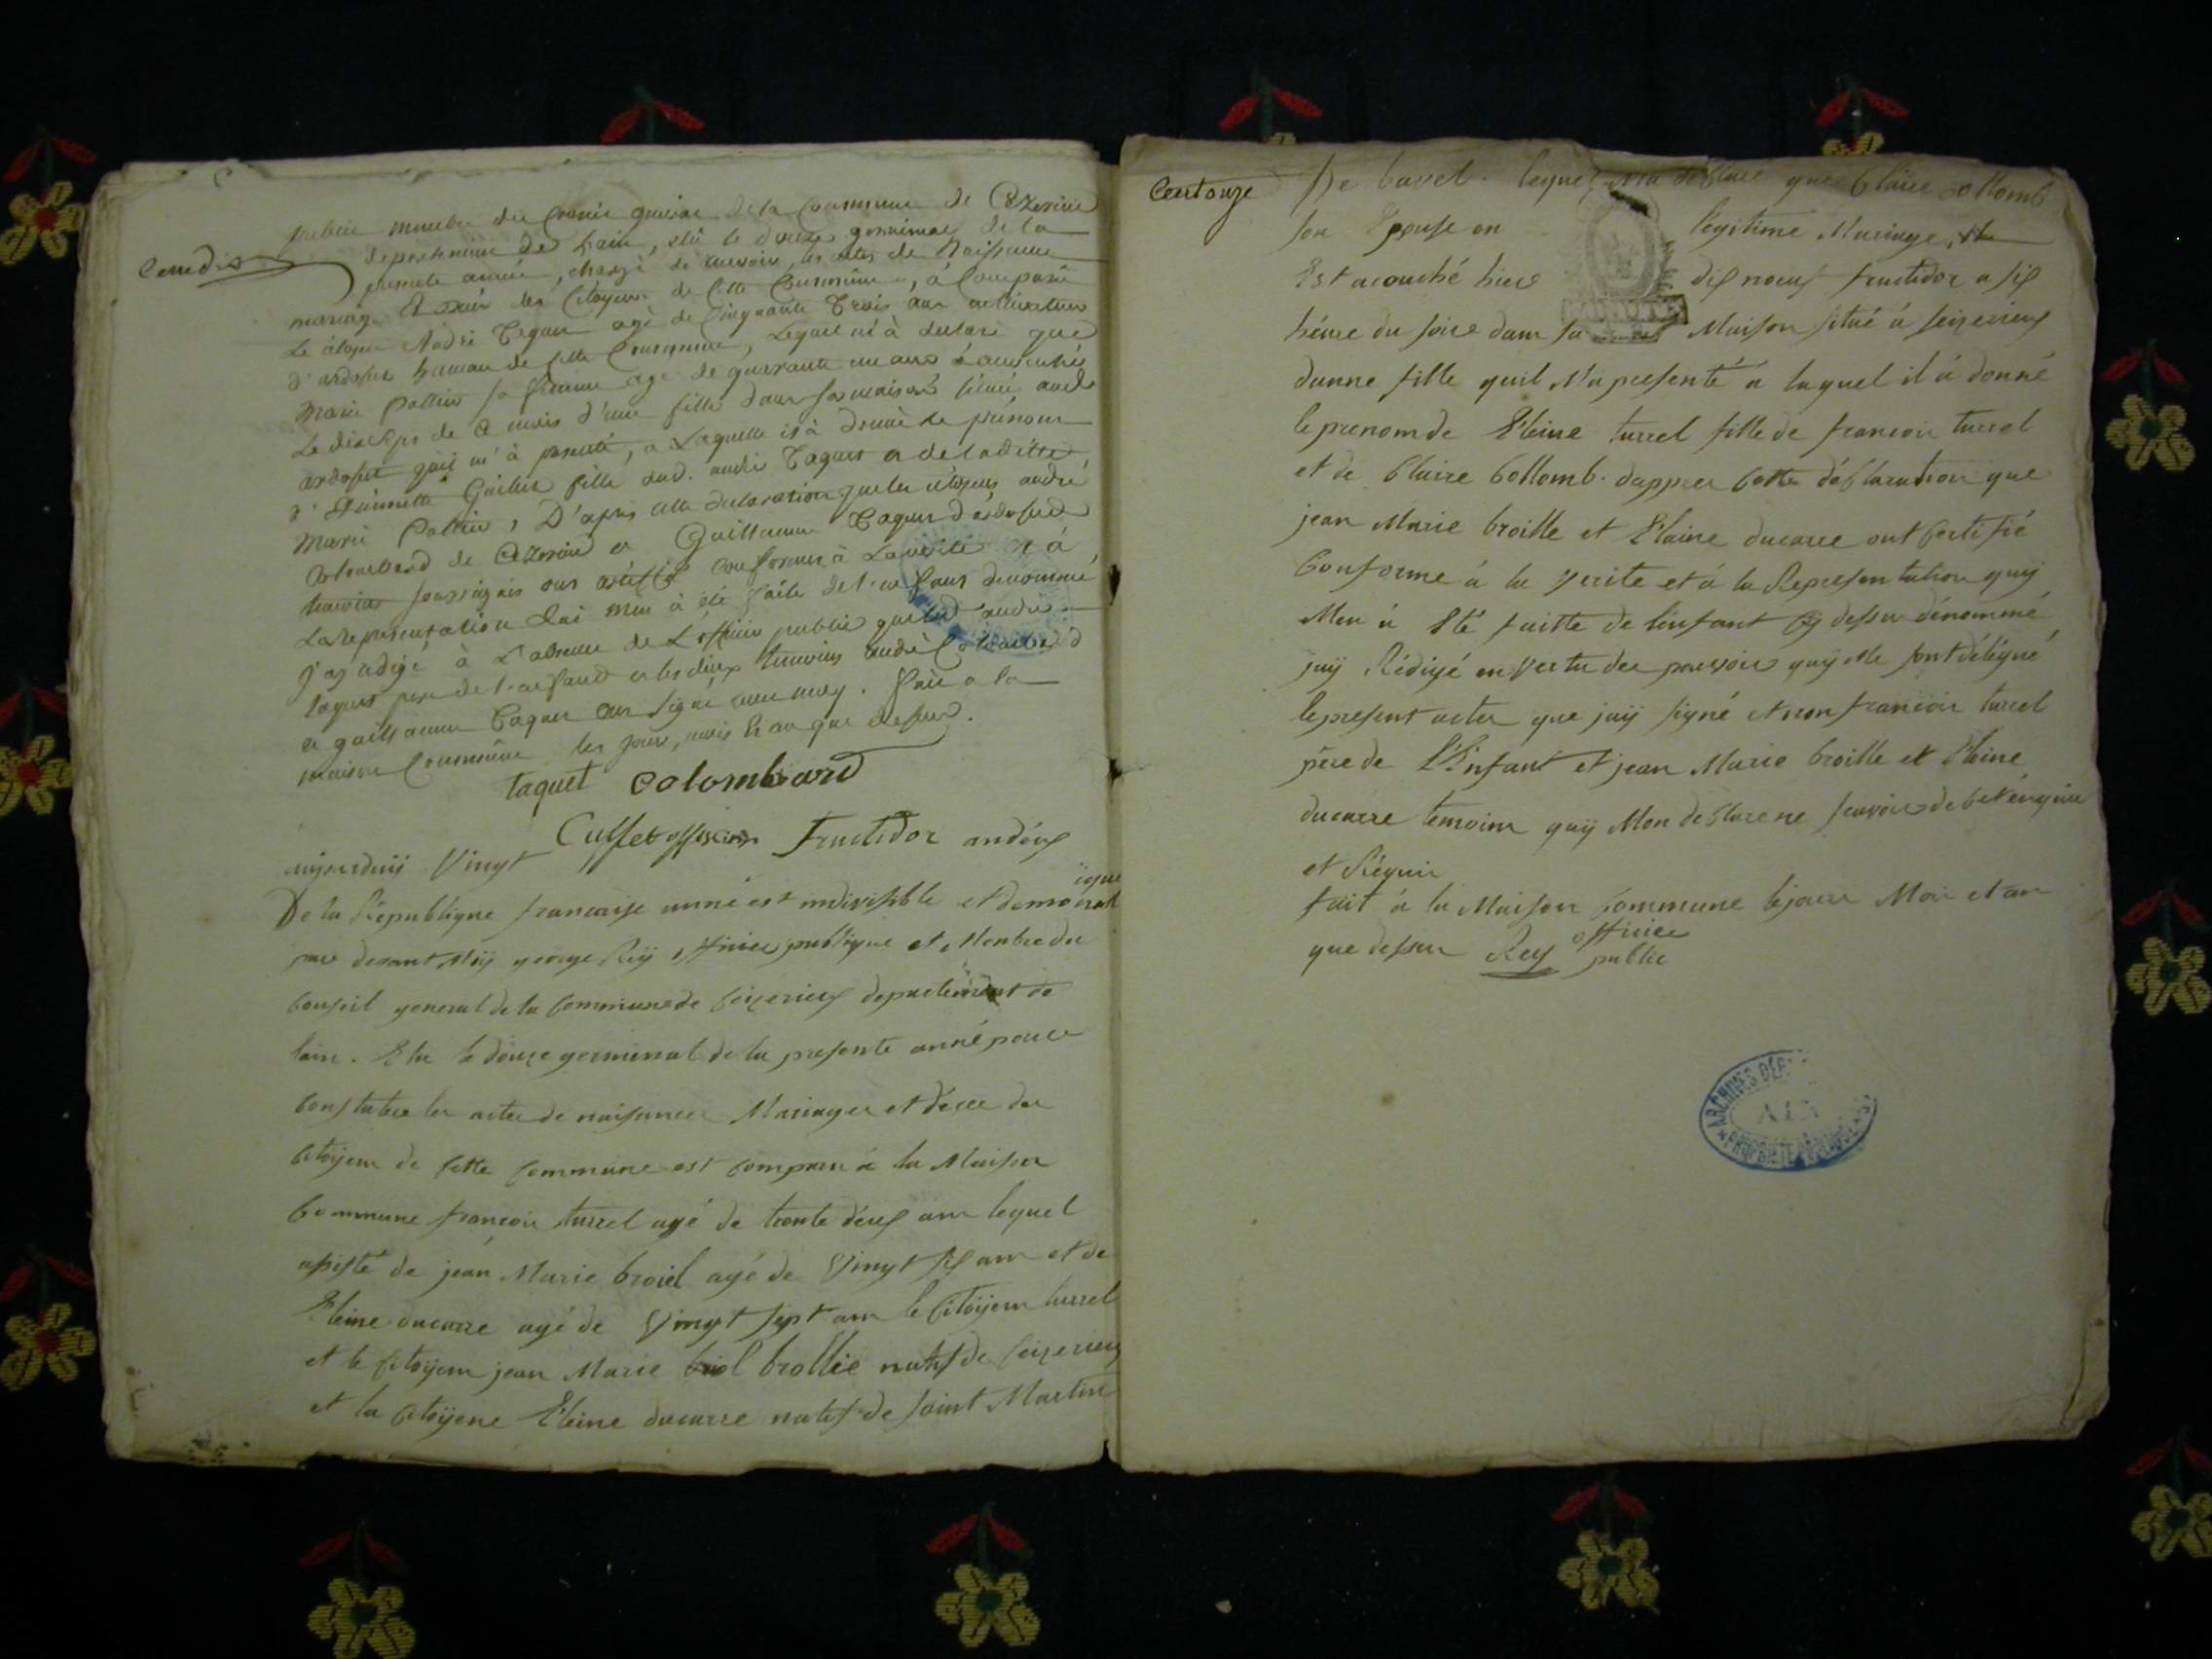 Cent dix
public membre du Conseil general de la Commune de Cézerieu
departement de Lain, élû le douze germinal de la
presente année, chargé de recevoir les actes de Naissance
mariage Et décès des Citoyens de Cette Commune, à Comparû
Le citoyen André Taquet agé de Cinquante Trois ans cultivateur
d'ardosset hameau de Cette Commune, Lequel m'à declaré que
Marie Pattin sa femme agé de quarante un ans à accouchée
Le dixhuit de ce mois d'une fille dans sa maison située aud.
ardosset quil m'à presenté, a Laquelle il à donné le prénom
d'Etiennette fille dud. andré Taquet et de laditte
Marie Pattin, D'après cette declaration que les citoyens andré
Colombard de Cézerieu et Guillaume Taquet d'ardosset
temoins soussignés ont certifié Conforme à La verité et à
La representation qui men à été faite de l'enfant denommé
j'ay redigé à L'absence de L'officier public que led. andré
taquet pere de l'enfant et les deux temoins andré Colombard
et guillaume Taquet ont signé avec moy. fait a la
maison Commune les jour, mois Et an que dessus.
taquet Colombard
Cusset officier
aujourduij Vingt Fructidor andeux
De la Republique francaise unne est indivisible et démocratique
par devant Moij george Reÿ officier publique et Membre du
Conseil general de la Commune de Ceizerieux departement de
lain. Elu le douze germinal de la presente anné pour
Constater les actes de naisances Mariages et déces des
Citoÿens de Cette Commune est Comparu a la Maison
Commune francois turrel agé de trente déux ans lequel
asisté de jean Marie broiel agé de Vingt six ans et de
Eleine ducarre agé de Vingt sept ans le Citoÿen turrel
et le Citoÿen jean Marie briol brollie natif de Ceizerieux
et la Citoÿene Eleine ducarre natif de saint Martin
Cent onze
De bavel. lequel Ma déClaré que Claire Collomb
son Epouse en légitime Mariage,
Est acouché hier dix noeuf fructidor a six
héure du soire dans sa Maison situé á seizerieux
dunne fille quil M'a presenté á laquel il á donné
le prenom de Eleine turrel fille de francois turrel
et de Claire Collomb. dappres Cette déClaration que
jean Marie broille et Elaine ducarre ont Certifié
Conforme á la verite et á la Representation quÿ
Men á Eté faitte de linfant Cy dessu dénommé
jaÿ Rédigé en vertu des pouvoirs quÿ Me sont déléqué
le present acter que jaÿ signé et non francois turrel
pére de L'Enfant et jean Marie broille et Eleine
ducarre temoins quÿ Mon declare ne scavoir de Ce Enquis
et Réquis
fait á la Maison Commune le jour Mois et an
que dessu Rey officier
public
ARCHIVES DÉP
AIN
PROPRIÉTÉ PUBLIQUE